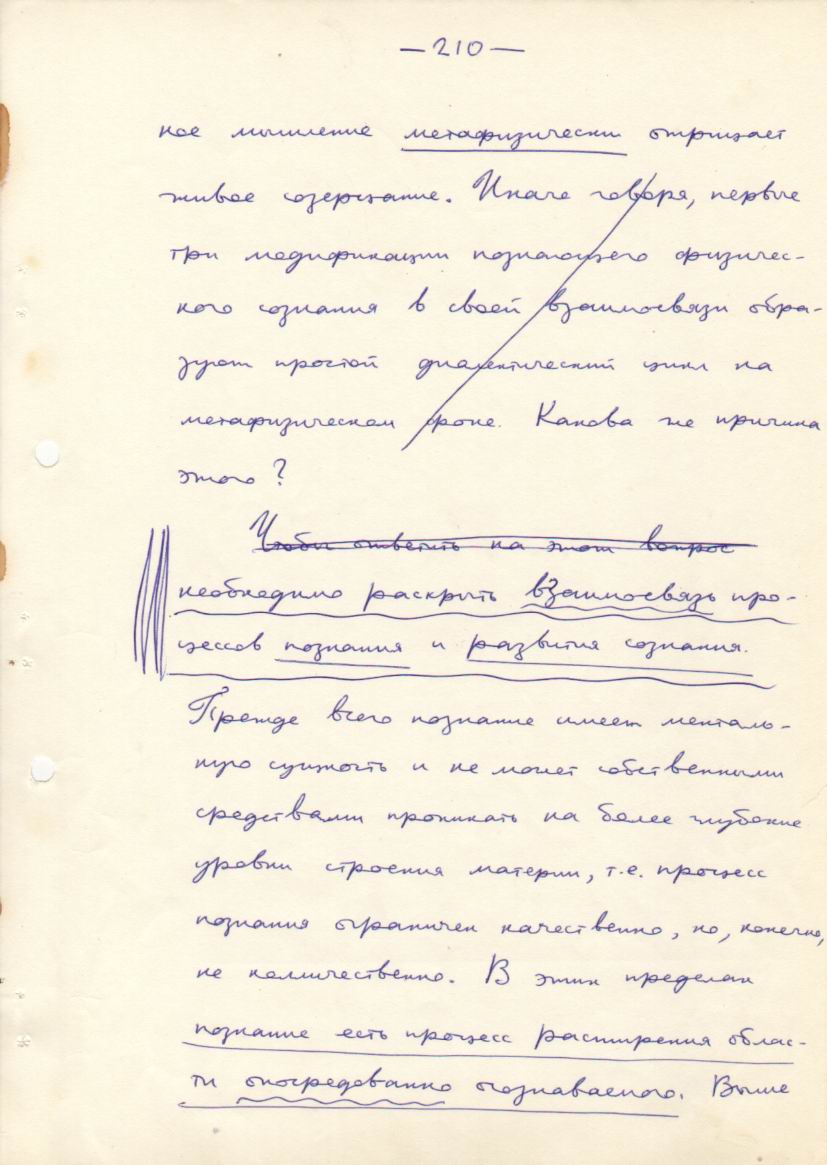 — 210 —
ное мышление метафизически отрицает
живое созерцание. Иначе говоря, первые
три модификации познающего физичес-
кого сознания в своей взаимосвязи обра-
зуют простой диалектический цикл на
метафизическом фоне. Какова же причина
этого?
Чтобы ответить на этот вопрос
необходимо раскрыть взаимосвязь про-
цессов познания и развития сознания.
Прежде всего познание имеет менталь-
ную сущность и не может собственными
средствами проникать на более глубокие
уровни строения материи, т.е. процесс
познания ограничен качественно, но, конечно,
не количественно. В этих пределах
познание есть процесс расширения облас-
ти опосредованно осознаваемого. Выше